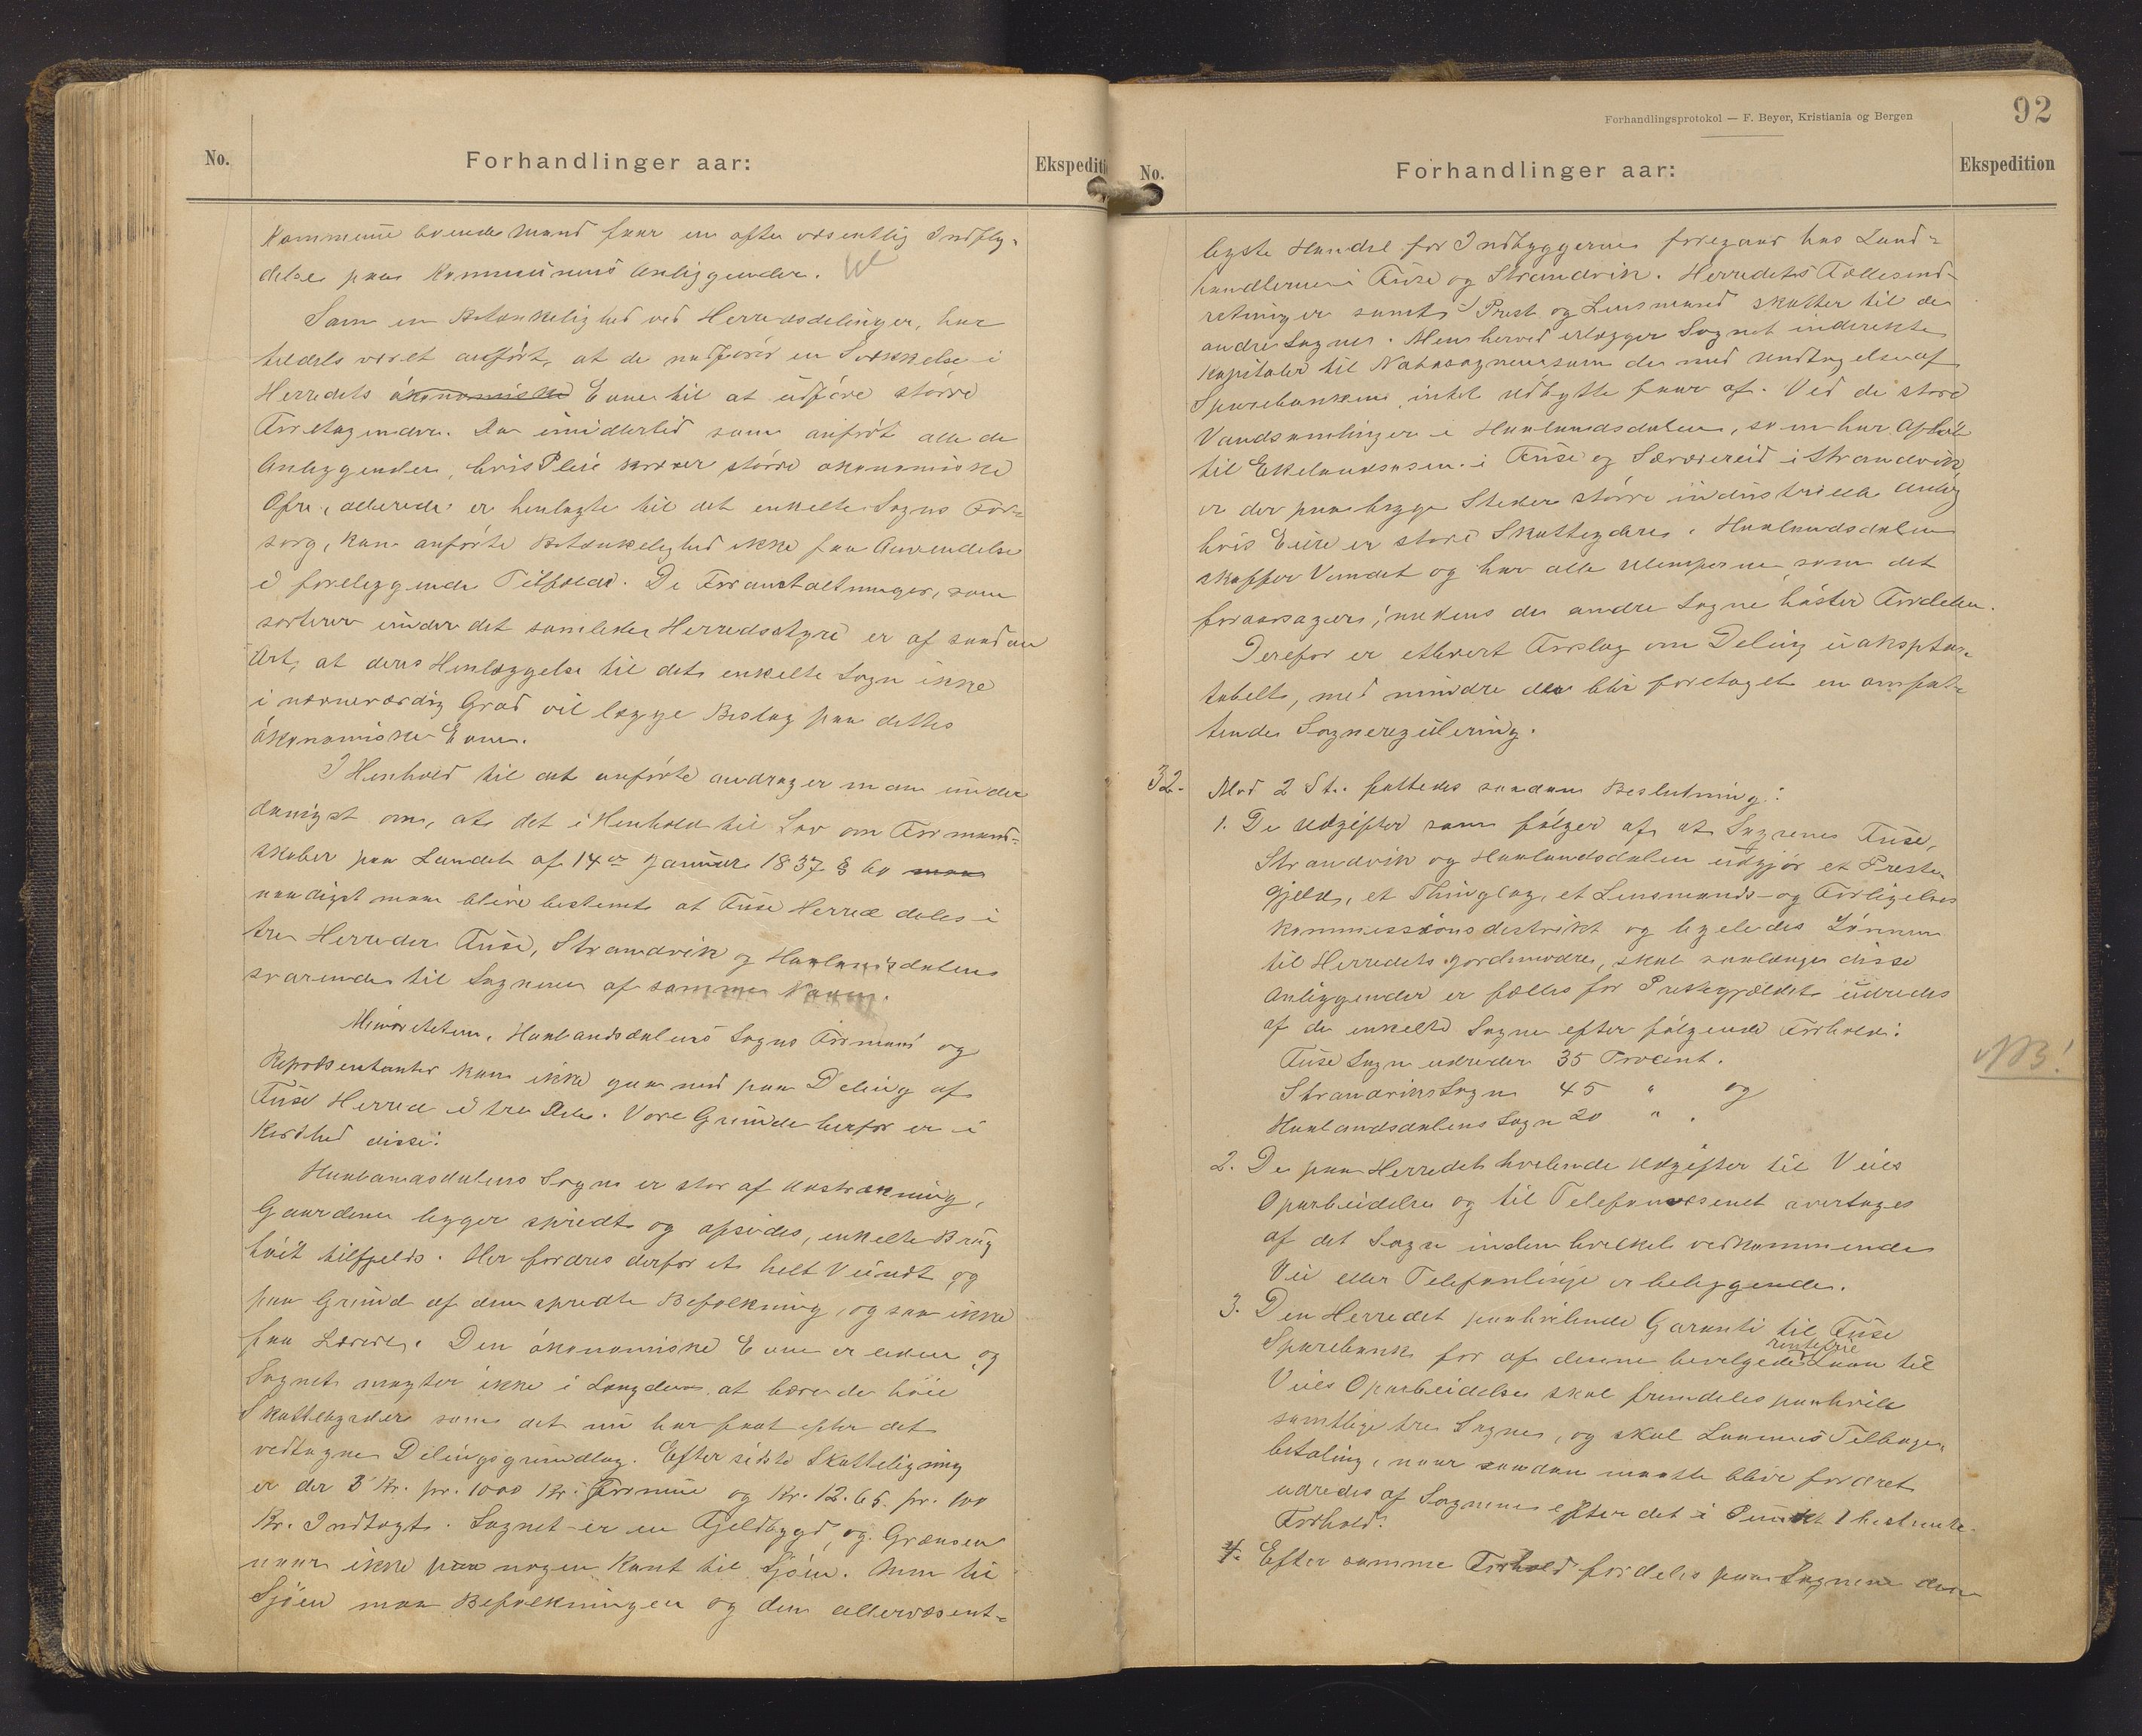 No.
Forhandlinger aar:
Ekspediti
Kommunen boende Mand faar en ofte væsentlig Indfly-
delse paa Kommunens Anliggender.
Som en Betænkelighed ved Herredsdelinger, har
tildels været anført, at de medfører en Svækkelse i
Herredets økonomiske Evne til at udføre større
Foretagender. Da imidlertid som anført alle de
Anliggender, hvis Pleie kræver større økonomiske
Ofre, allerede er henlagte til det enkelte Sogns For-
sorg, kan anførte Betænkelighed ikke faa Anvendelse
i foreliggende Tilfælde. De Foranstaltninger, som
sorterer under det samlede Herredsstyre er af saadan
Art, at deres Henlæggelse til det enkelte Sogn ikke
i nævneværdig Grad vil lægge Beslag paa dettes
økonomiske Evne.
I Henhold til det anførte andrager man under
danigst om, at det i Henhold til Lov om Formand-
skaber paa Landet af 14de Januar 1837 § 60 maa
naadigst maa blive bestemt at Fuse Herred deles i
tre Herreder Fuse, Strandvik og Haalandsdalen
svarende til Sognene af samme Navn.
Minoriteten, Haalandsdalens Sogns Formand og
Repræsentanter kan ikke gaa med paa Deling af
Fuse Herred i tre Dele. Vore Grunde herfor er i
Korthed disse:
Haalandsdalens Sogn er stor af Udstrækning,
Gaardene ligger spredt og afsides, enkelte Brug
høit tilfjelds. Her fordres derfor et helt Veinæt og
paa Grund af den spredte Befolkning, og saa ikke
faa Lærere. Den økonomiske Evne er liden og
Sognet magter ikke i Længden at bære de høie
Skattebyrder som det nu har faat efter det
vedtagne Delingsgrundlag. Efter sidste Skatteligning
er der 3 Kr. pr. 1000 Kr. Formue og Kr. 12.65 pr. 100
Kr. Indtægt. Sognet er en Fjeldbygd, og Grænsen
naar ikke paa nogen Kant til Sjøen. Men til
Sjøen maa Befolkningen og den allervæsent-
Forhandlingsprotokol — F. Beyer, Kristiania og Bergen
92
No.
Forhandlinger aar:
Ekspedition
ligste Handel for Indbyggerne foregaar hos Land-
handlerne i Fuse og Strandvik. Herredets Fællesind-
retninger samt Prest og Lensmand skatter til de
andre Sogne. Men herved erlægger Sognet indirekte
Kapitaler til Nabosognene som det med Undtagelse af
Sparebankene intet Udbytte faar af. Ved de store
Vandsamlinger i Haalandsdalen, som har Afløb
til Ekelandsosen i Fuse og Sævareid i Strandvik,
er der paa begge Steder større industrielle Anlæg
hvis Eiere er store Skatteydere. Haalandsdalen
skaffer Vandet og har alle Ulemperne som det
foraarsager, medens de andre Sogne høster Fordelen.
Derefor er ethvert Forslag om Deling uaksptan-
tabelt, med mindre der blir foretaget en omfat-
tende Sogneregulering.
32. Mod 2 St. fattedes saadan Beslutning:
1. De Udgifter som følger af at Sognene Fuse,
Strandvik og Haalandsdalen udgjør et Preste-
gjeld, et Thinglag, et Lensmands- og Forligelses
kommissionsdistrikt og ligeledes Lønnen
til Herredets Jordmødre, skal saalænge disse
Anliggender er fælles for Prestegjældet udredes
af de enkelte Sogne efter følgende Forhold:
Fuse Sogn udreder 35 Procent.
Strandviks Sogn 45 " og
Haalandsdalens Sogn 20 " .
NB!
2. De paa Herredet hvilende Udgifter til Veies
Oparbeidelse og til Telefonvæsenet overtages
af det Sogn inden hvilket vedkommende
Vei eller Telefonlinje er beliggende.
3. Den Herredet paahvilende Garanti til Fuse
Sparebank for af denne bevilgede rentefrie Laan til
Veies Oparbeidelse skal fremdeles paahvile
samtlige tre Sogne, og skal Laanenes Tilbage-
betaling, naar saadan maatte blive fordret
udredes af Sognene efter det i Punkt 1 bestemte
Forhold.
4. Efter samme Forhold fordeles paa Sognene den